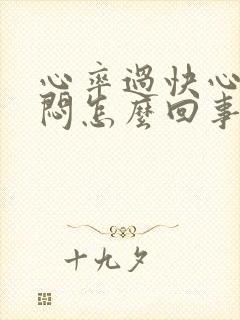 心率過快心
悶怎麼回事
十九夕